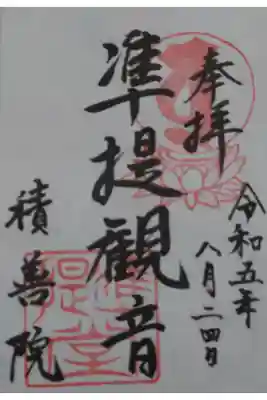 奉拝
令和五年
八月二四日
准提観音
積善院